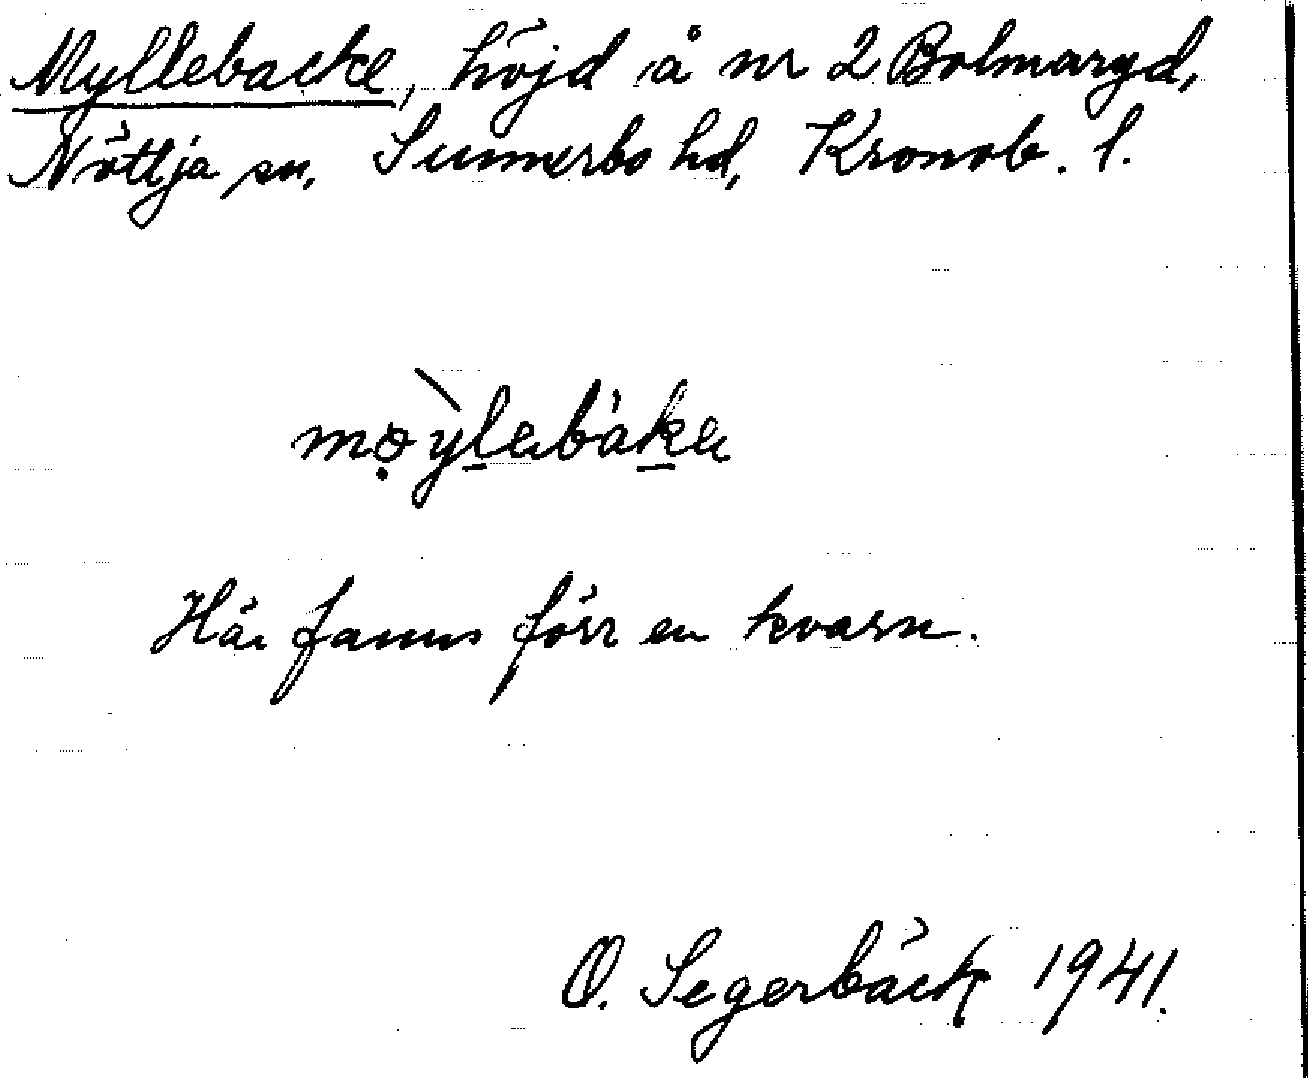 Myllebacke, höjd å nr 2 Bolmaryd,
Nöttja sn, Sunnerbo hd, Kronob. l.
mọ̀yl̲ebàk̲e
Här fanns förr en kvarn.
O. Segerbäck 1941.